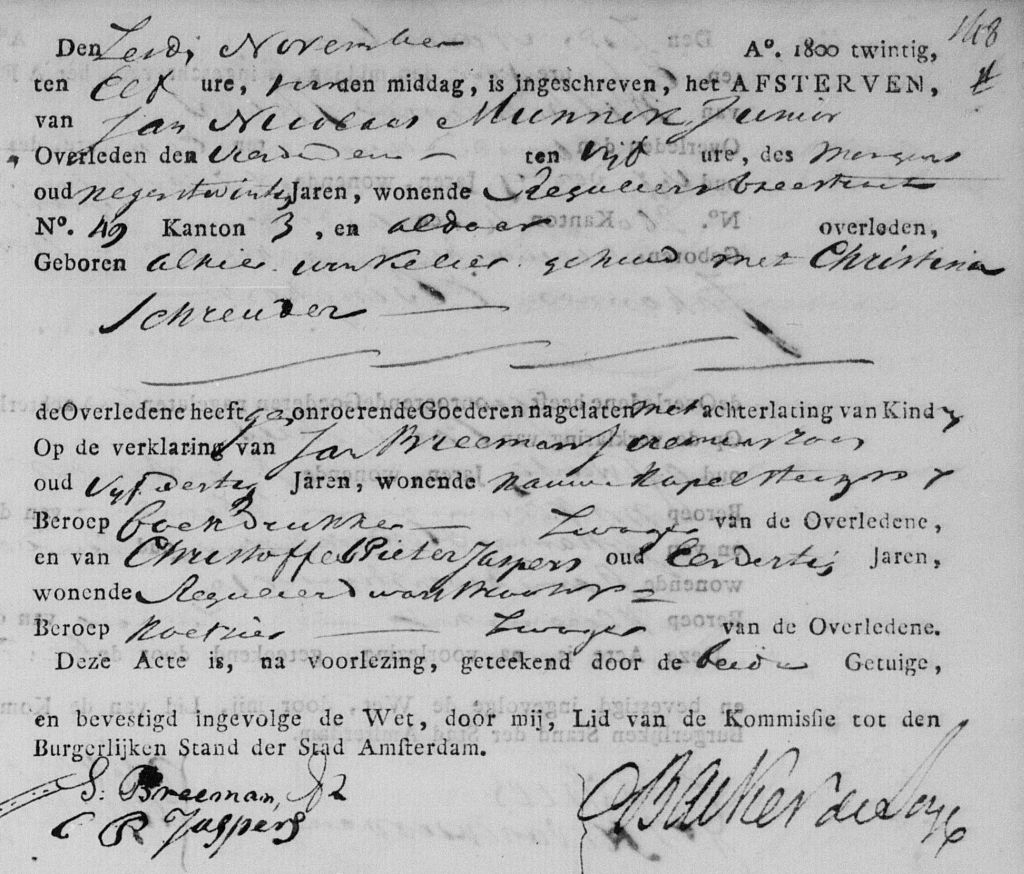 148
Den Zesde November Aº. 1800 twintig,
ten Elf ure, voorden middag, is ingeschreven, het AFSTERVEN,
van Jan Nicolaas Munnik Junior
Overleden den Vierden ten Vijf ure, des Morgens
oud negentwintig Jaren, wonende Reguliers breestraat
Nº. 49 Kanton 3, en aldaar overleden,
Geboren alhier winkelier gehuwd met Christina
Schreuder
de Overledene heeft geen onroerende Goederen nagelaten met achterlating van Kind
Op de verklaring van Jan Breeman
oud Vijfdertig Jaren, wonende Kapelsteeg
Beroep boekdrukker Zwager van de Overledene,
en van Christoffel Pieter Jaspers oud Eendertig Jaren,
wonende Reguliers
Beroep Koetsier Zwager van de Overledene.
Deze Acte is, na voorlezing, geteekend door de beide Getuige,
en bevestigd ingevolge de Wet, door mij, Lid van de Kommissie tot den
Burgerlijken Stand der Stad Amsterdam.
J. Breeman, Jz
C P Jaspers
Backer